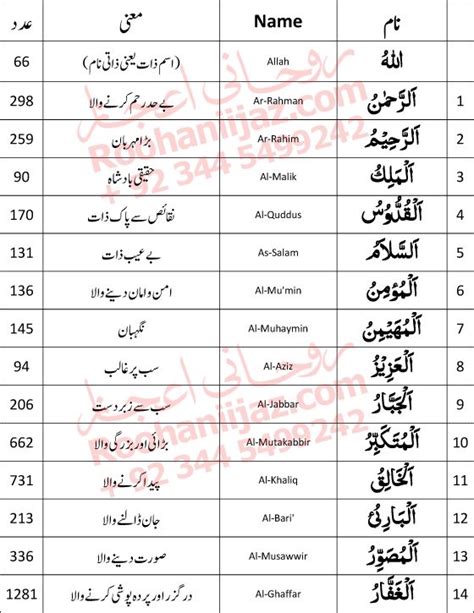 عدد معنی Name نام
66 (اسم ذات یعنی ذاتی نام) Allah اللهُ
298 بے حد رحم کرنے والا Ar-Rahman اَلرَّحْمٰنُ 1
259 بڑا مہربان Ar-Rahim اَلرَّحِيْمُ 2
90 حقیقی بادشاہ Al-Malik اَلْمَلِكُ 3
170 نقائص سے پاک ذات Al-Quddus اَلْقُدُّوْسُ 4
131 بے عیب ذات As-Salam اَلسَّلَامُ 5
136 امن و امان دینے والا Al-Mu'min اَلْمُؤْمِنُ 6
145 نگہبان Al-Muhaymin اَلْمُهَيْمِنُ 7
94 سب پر غالب Al-Aziz اَلْعَزِيْزُ 8
206 سب سے زبردست Al-Jabbar اَلْجَبَّارُ 9
662 بڑائی اور بزرگی والا Al-Mutakabbir اَلْمُتَكَبِّرُ 10
731 پیدا کرنے والا Al-Khaliq اَلْخَالِقُ 11
213 جان ڈالنے والا Al-Bari' اَلْبَارِئُ 12
336 صورت دینے والا Al-Musawwir اَلْمُصَوِّرُ 13
1281 درگزر اور پردہ پوشی کرنے والا Al-Ghaffar اَلْغَفَّارُ 14
روحانی اعجاز
Roohaniijaz.com
+ 92 344 5499242
روحانی اعجاز
Roohaniijaz.com
+ 92 344 5499242